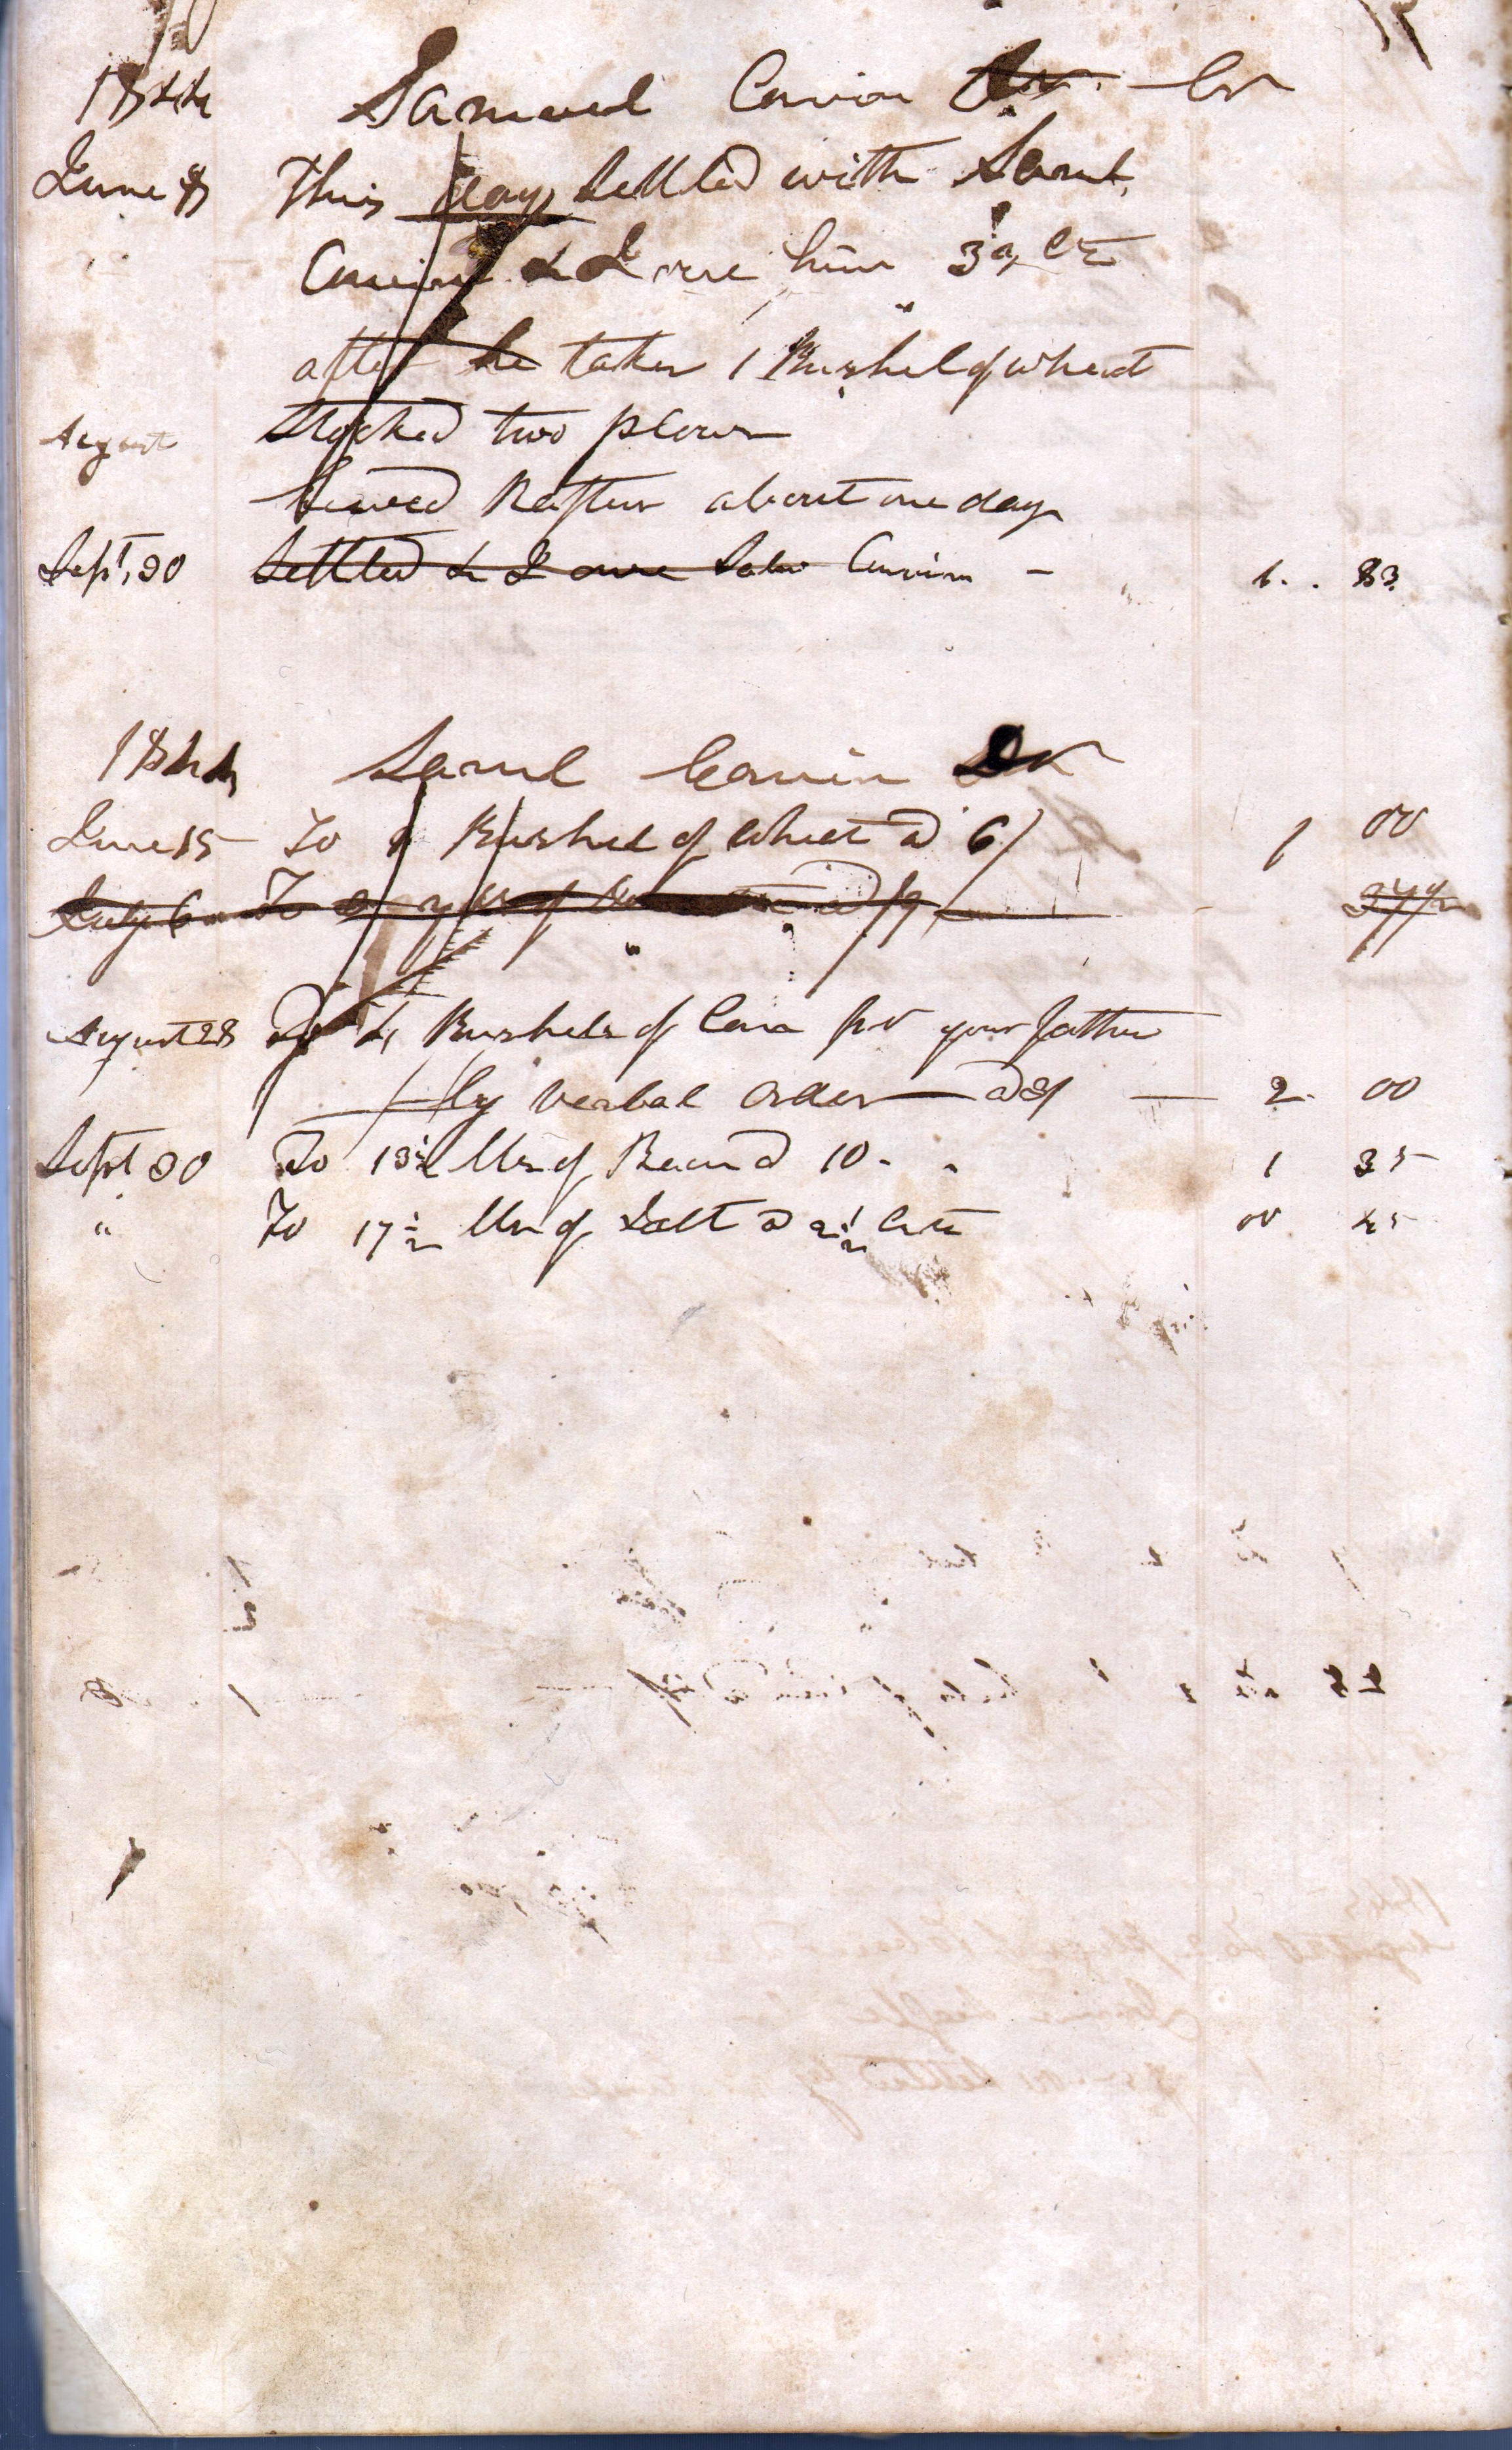 1844 Samuel Corwin Dr. - Cr
June 8 This day Settled with Saml.
Corwin & I owe him 39 Cts
after he takes 1 Bushel of wheat
August Stocked two plows
hewed Rafters about one day
Sept. 30 Settled & I owe Corwin - 1. . 83
1844 Saml Corwin Dr
June 15 To a Bushel of wheat a 6/ 1 00
July 6 To
August 28 To 4 Bushels of Corn for your father
by verbal order — a 3/ — 2. 00
Sept 30 To 13½ lbs of Bacon a 10 - . 1 35
" To 17½ lbs of Salt a 2½ Cts 00 45